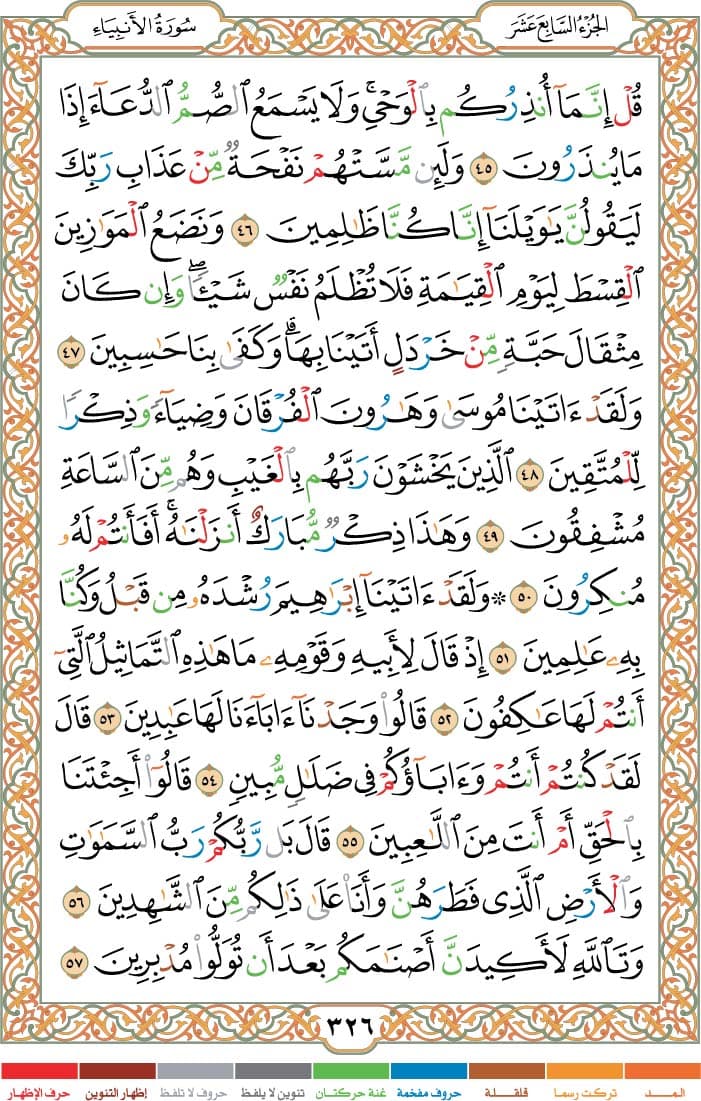 الجُزْءُ السَّابِعَ عَشَرَ
سُورَةُ الأَنبِيَاءِ
قُلۡ إِنَّمَآ أُنذِرُكُم بِٱلۡوَحۡيِۚ وَلَا يَسۡمَعُ ٱلصُّمُّ ٱلدُّعَآءَ إِذَا
مَا يُنذَرُونَ ٤٥ وَلَئِن مَّسَّتۡهُمۡ نَفۡحَةٞ مِّنۡ عَذَابِ رَبِّكَ
لَيَقُولُنَّ يَٰوَيۡلَنَآ إِنَّا كُنَّا ظَٰلِمِينَ ٤٦ وَنَضَعُ ٱلۡمَوَٰزِينَ
ٱلۡقِسۡطَ لِيَوۡمِ ٱلۡقِيَٰمَةِ فَلَا تُظۡلَمُ نَفۡسٞ شَيۡـٔٗاۖ وَإِن كَانَ
مِثۡقَالَ حَبَّةٖ مِّنۡ خَرۡدَلٍ أَتَيۡنَا بِهَاۗ وَكَفَىٰ بِنَا حَٰسِبِينَ ٤٧
وَلَقَدۡ ءَاتَيۡنَا مُوسَىٰ وَهَٰرُونَ ٱلۡفُرۡقَانَ وَضِيَآءٗ وَذِكۡرٗا
لِّلۡمُتَّقِينَ ٤٨ ٱلَّذِينَ يَخۡشَوۡنَ رَبَّهُم بِٱلۡغَيۡبِ وَهُم مِّنَ ٱلسَّاعَةِ
مُشۡفِقُونَ ٤٩ وَهَٰذَا ذِكۡرٞ مُّبَارَكٌ أَنزَلۡنَٰهُۚ أَفَأَنتُمۡ لَهُۥ
مُنكِرُونَ ٥٠ ۞ وَلَقَدۡ ءَاتَيۡنَآ إِبۡرَٰهِيمَ رُشۡدَهُۥ مِن قَبۡلُ وَكُنَّا
بِهِۦ عَٰلِمِينَ ٥١ إِذۡ قَالَ لِأَبِيهِ وَقَوۡمِهِۦ مَا هَٰذِهِ ٱلتَّمَاثِيلُ ٱلَّتِيٓ
أَنتُمۡ لَهَا عَٰكِفُونَ ٥٢ قَالُواْ وَجَدۡنَآ ءَابَآءَنَا لَهَا عَٰبِدِينَ ٥٣ قَالَ
لَقَدۡ كُنتُمۡ أَنتُمۡ وَءَابَآؤُكُمۡ فِي ضَلَٰلٖ مُّبِينٖ ٥٤ قَالُوٓاْ أَجِئۡتَنَا
بِٱلۡحَقِّ أَمۡ أَنتَ مِنَ ٱللَّٰعِبِينَ ٥٥ قَالَ بَل رَّبُّكُمۡ رَبُّ ٱلسَّمَٰوَٰتِ
وَٱلۡأَرۡضِ ٱلَّذِي فَطَرَهُنَّ وَأَنَا۠ عَلَىٰ ذَٰلِكُم مِّنَ ٱلشَّٰهِدِينَ ٥٦
وَتَٱللَّهِ لَأَكِيدَنَّ أَصۡنَٰمَكُم بَعۡدَ أَن تُوَلُّواْ مُدۡبِرِينَ ٥٧
٣٢٦
المـــد تركت رسما قلقـــلة حروف مفخمة غنة حركتان تنوين لا يلفظ حروف لا تلفظ إظهار التنوين حرف الإظهار